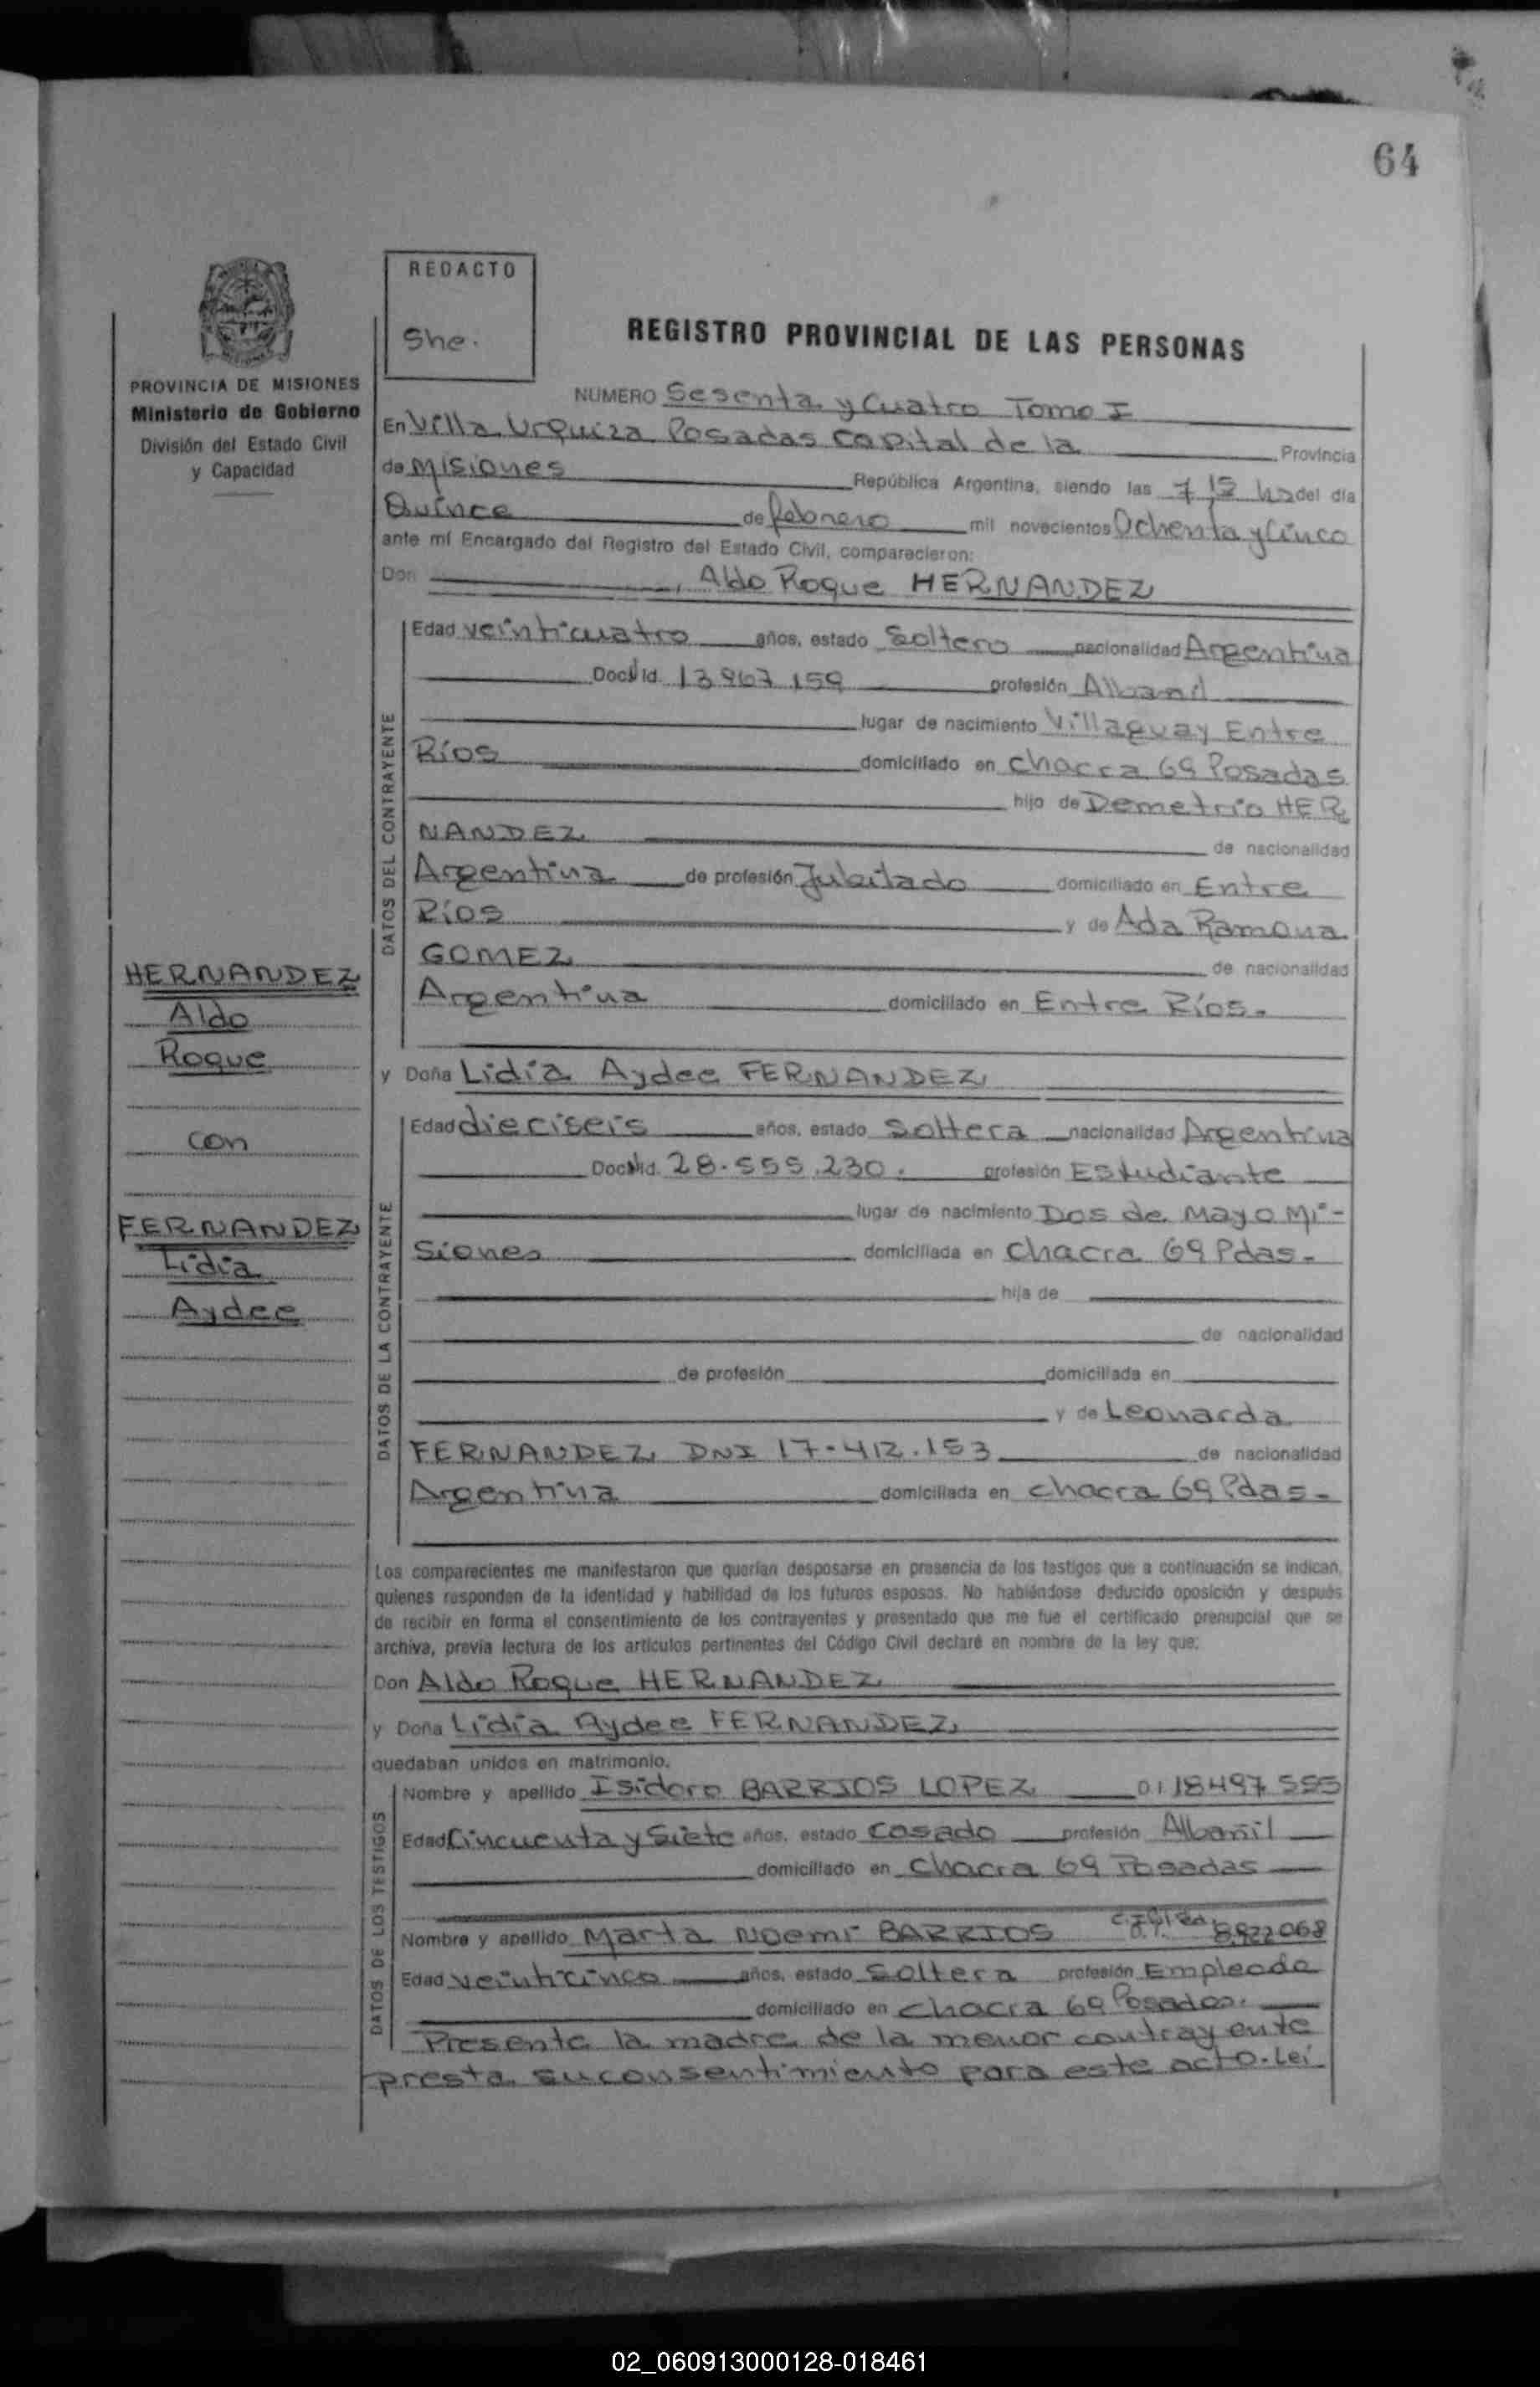 64
REDACTO
She.
PROVINCIA DE MISIONES
Ministerio de Gobierno
División del Estado Civil
y Capacidad
REGISTRO PROVINCIAL DE LAS PERSONAS
NUMERO Sesenta y Cuatro Tomo I
En Villa Urquiza Posadas Capital de la Provincia
de Misiones República Argentina, siendo las 7,15 hs del día
Quince de febrero mil novecientos Ochenta y Cinco
ante mí Encargado del Registro del Estado Civil, comparecieron:
Don Aldo Roque HERNANDEZ
DATOS DEL CONTRAYENTE
Edad veinticuatro años, estado Soltero nacionalidad Argentina
Doc. Id. 13.967.159 profesión
lugar de nacimiento Villaguay Entre
Ríos domiciliado en chacra 69 Posadas
hijo de Demetrio HER
NANDEZ de nacionalidad
Argentina de profesión Jubilado domiciliado en Entre
Ríos y de Ada Ramona
GOMEZ de nacionalidad
Argentina domiciliado en Entre Ríos.
HERNANDEZ
Aldo
Roque
con
FERNANDEZ
Lidia
Aydee
y Doña Lidia Aydee FERNANDEZ
DATOS DE LA CONTRAYENTE
Edad dieciseis años, estado Soltera nacionalidad Argentina
Doc. Id. 28.555.230. profesión Estudiante
lugar de nacimiento Dos de Mayo Mi-
siones domiciliada en Chacra 69 Pdas.
hija de
de nacionalidad
de profesión domiciliada en
y de Leonarda
FERNANDEZ DNI 17.412.153 de nacionalidad
Argentina domiciliada en chacra 69 Pdas.
Los comparecientes me manifestaron que querían desposarse en presencia de los testigos que a continuación se indican,
quienes responden de la identidad y habilidad de los futuros esposos. No habiéndose deducido oposición y después
de recibir en forma el consentimiento de los contrayentes y presentado que me fue el certificado prenupcial que se
archiva, previa lectura de los artículos pertinentes del Código Civil declaré en nombre de la ley que:
Don Aldo Roque HERNANDEZ
y Doña Lidia Aydee FERNANDEZ
quedaban unidos en matrimonio.
DATOS DE LOS TESTIGOS
Nombre y apellido Isidoro BARRIOS LOPEZ D.I. 18497555
Edad Cincuenta y Siete años, estado Casado profesión Albañil
domiciliado en Chacra 69 Posadas
Nombre y apellido Marta Noemi BARRIOS D.I. 8.922.068
Edad veinticinco años, estado Soltera profesión Empleada
domiciliado en chacra 69 Posadas.
Presente la madre de la menor contrayente
presta su consentimiento para este acto. Leí
02_060913000128-018461